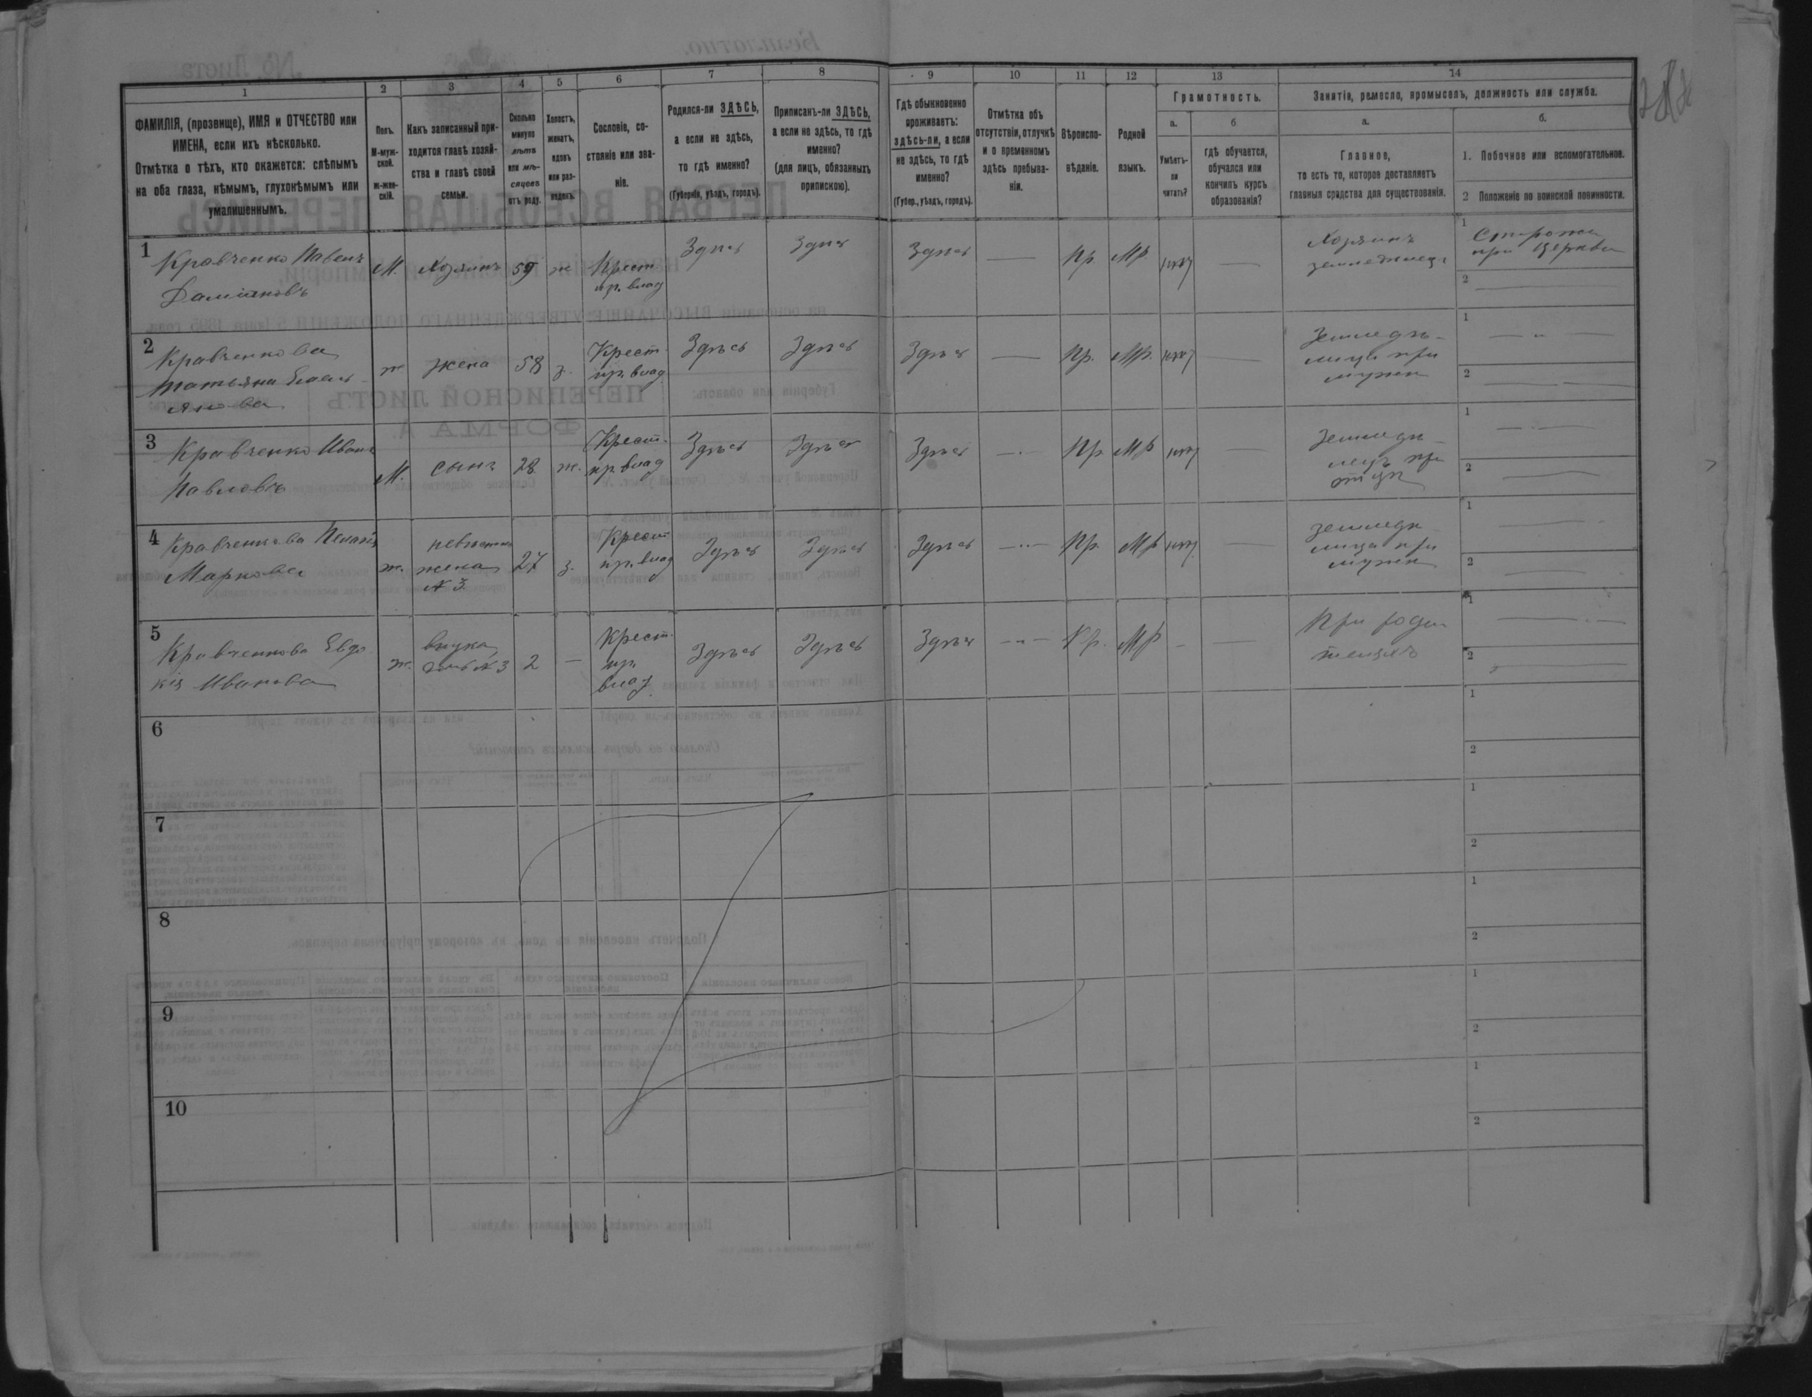 1
2
3
4
5
6
7
8
ФАМИЛІЯ, (прозвище), ИМЯ и ОТЧЕСТВО или
ИМЕНА, если ихъ нѣсколько.
Отмѣтка о тѣхъ, кто окажется: слѣпымъ
на оба глаза, нѣмымъ, глухонѣмымъ или
умалишеннымъ.
Полъ.
М-муж-
ской.
ж-жен-
скій.
Какъ записанный при-
ходится главѣ хозяй-
ства и главѣ своей
семьи.
Сколько
минуло
лѣтъ
или мѣ-
сяцевъ
отъ роду.
Холостъ,
женатъ,
вдовъ
или раз-
веденъ.
Сословіе, со-
стояніе или зва-
ніе.
Родился-ли ЗДѢСЬ,
а если не здѣсь,
то гдѣ именно?
(Губернія, уѣздъ, городъ).
Приписанъ-ли ЗДѢСЬ,
а если не здѣсь, то гдѣ
именно?
(для лицъ, обязанныхъ
припискою).
9
10
11
12
13
14
Гдѣ обыкновенно
проживаетъ:
здѣсь-ли, а если
не здѣсь, то гдѣ
именно?
(Губер., уѣздъ, городъ).
Отмѣтка объ
отсутствіи, отлучкѣ
и о временномъ
здѣсь пребыва-
ніи.
Вѣроиспо-
вѣданіе.
Родной
языкъ.
Грамотность.
а.
б
Умѣетъ-
ли
читать?
гдѣ обучается,
обучался или
кончилъ курсъ
образованія?
Занятія, ремесло, промыселъ, должность или служба.
а.
б.
Главное,
то есть то, которое доставляетъ
главныя средства для существованія.
1. Побочное или вспомогательное.
2 Положеніе по воинской повинности.
1
Кравченко Павелъ
Даміановъ
М.
Хозяинъ
59
ж
Крест.
пр. влад
Здѣсь
Здѣсь
Здѣсь
—
Пр.
Мр
нѣтъ
—
Хозяинъ
земледѣлецъ
1
Сторожъ
при церкви
2
2
Кравченкова
Татьяна
ж
жена
58
з.
Крест.
пр. влад
Здѣсь
Здѣсь
Здѣсь
—
Пр.
Мр.
нѣтъ
—
Земледѣ-
лица при
мужѣ
1
2
3
Кравченко Иванъ
Павловъ
М.
сынъ
28
ж.
Крест.
пр. влад
Здѣсь
Здѣсь
Здѣсь
—
Пр
Мр
нѣтъ
—
Земледѣ-
лецъ при
отцѣ
1
2
4
Кравченкова
Маркова
ж.
невѣстка
жена
№ 3.
27
з.
Крест.
пр. влад
Здѣсь
Здѣсь
Здѣсь
—
Пр.
Мр
нѣтъ
—
Земледѣ
лица при
мужѣ
1
2
5
Кравченкова Евдо
кія Иванова
ж.
внука
дочь № 3
2
—
Крест.
пр.
влад.
Здѣсь
Здѣсь
Здѣсь
—
Пр.
Мр
-
—
При роди
теляхъ
1
2
6
1
2
7
1
2
8
1
2
9
1
2
10
1
2